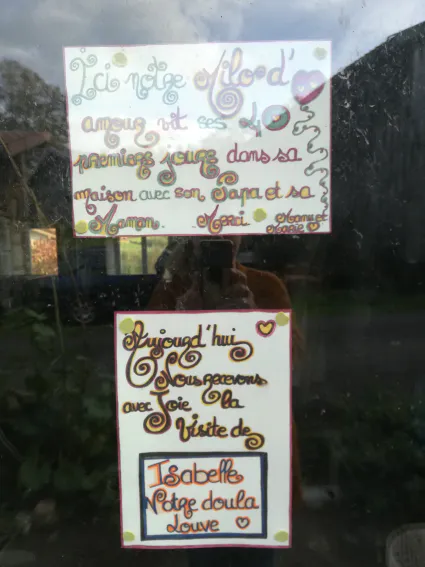 Ici notre Milord'
amour vit ses 40
premiers jours dans sa
maison avec son Papa et sa
Maman.. Merci Manu et
Marie
Aujourd'hui
Nous recevons
avec Joie la
Visite de
Isabelle
Notre doula
Louve